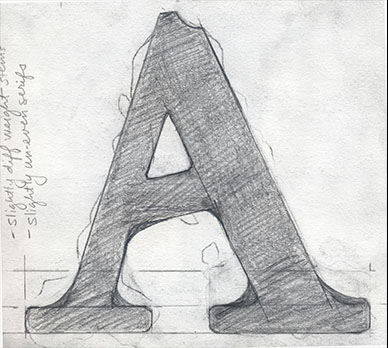 - slightly diff weight stems
- slightly uneven serifs
A